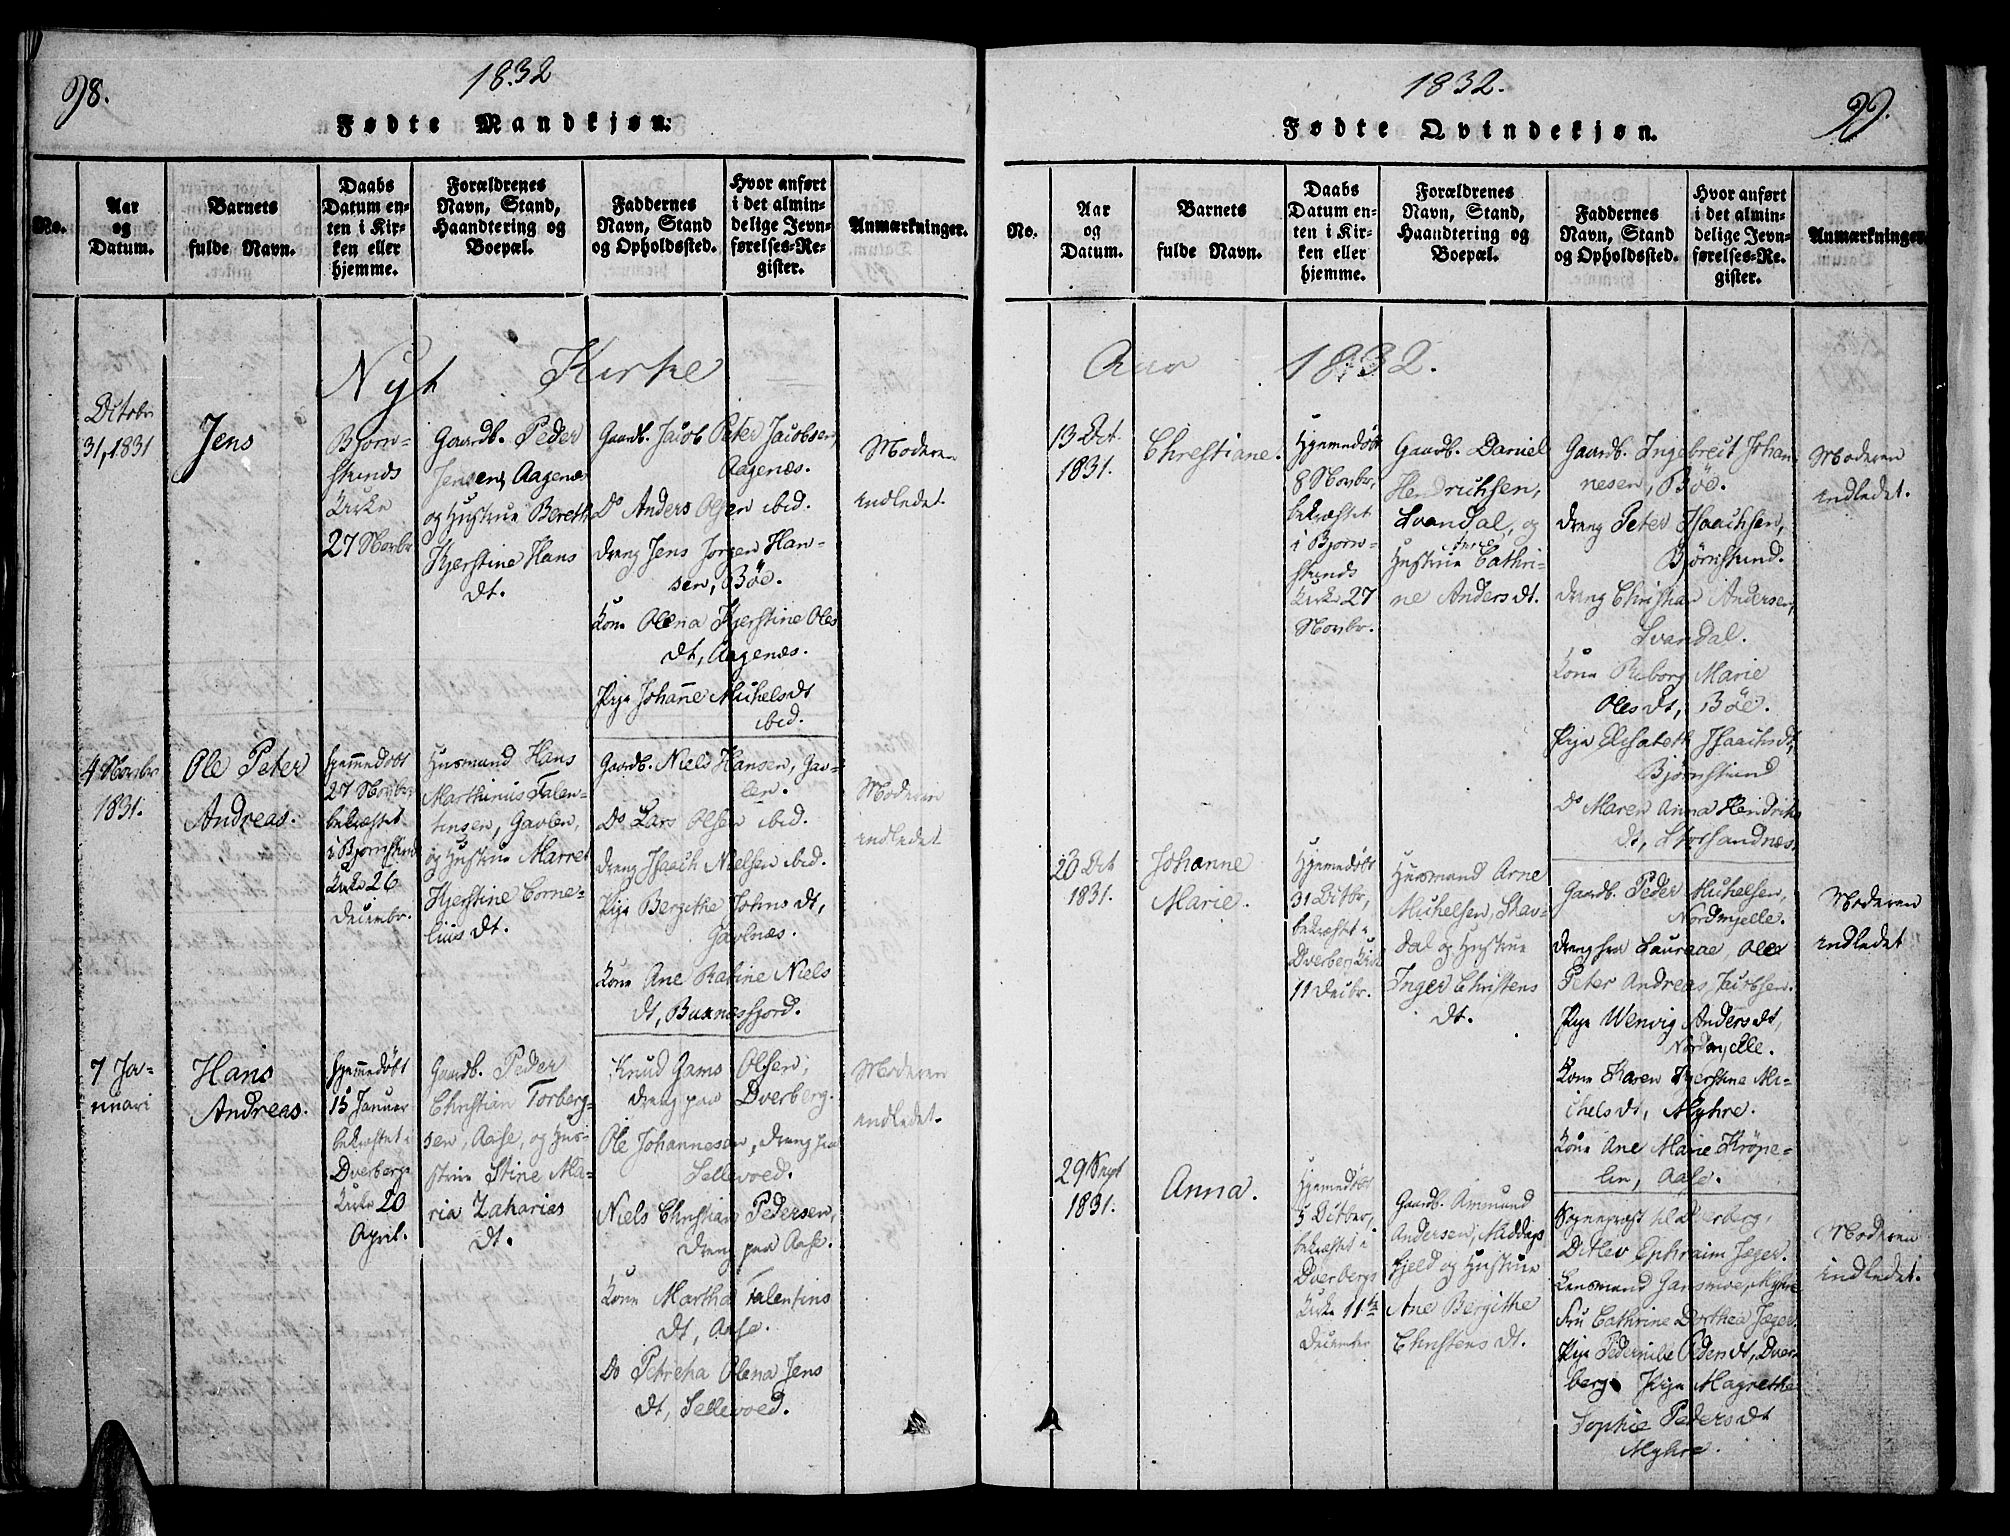 98.
1832
Fødte Mandkjøn.
No.
Aar
og
Datum.
Barnets
fulde Navn.
Daabs
Datum en-
ten i Kir-
ken eller
hjemme.
Forældrenes
Navn, Stand,
Haandtering og
Boepæl.
Faddernes
Navn, Stand
og Opholdssted.
Hvor anført
i det almin-
delige Jevn-
førelses-Re-
gister.
Anmærkninger.
Nyt Kirke
Octobr
31, 1831
Jens
Bjørn-
skinds
Kirke
27 Novbr
Gaardb. Peder
Jensen, Aagenæs
og Hustrue Bereth
Kjerstine Hans
dt.
Gaardb. Jacob Peter Jacobsen,
Aagenæs.
Do Anders Olsen ibid.
Dreng Jens Jørgen Han-
sen, Böe.
Kone Olena Kjerstine Oles
dt, Aagenæs.
Pige Johanne Michelsdt
ibid.
Moderen
indledet.
4 Novbr
1831.
Ole Peter
Andreas.
hjemmedøbt
27 Novbr
bekræftet
i Bjørnskinds
Kirke 26
Decembr.
Husmand Hans
Marthinus Falen-
tinsen, Gavlen,
og Hustrue Marret
Kjerstine Corne-
lius dt.
Gaardb. Niels Hansen, Gav-
len.
Do Lars Olsen ibid.
Dreng Isaach Nielsen ibid.
Pige Bergithe Johnsdt,
Gavlnæs.
Kone Ane Rasine Niels
dt, Buxnæsfjord.
Moderen
indledet
7 Ja-
nuari
Hans
Andreas.
hjemmedøbt
15 Januar
bekræftet i
Dverbergs
Kirke 20
April.
Gaardb. Peder
Christian Torberg-
sen, Aase, og Hu-
strue Stine Ma-
ria Zacharias
dt.
Knud Gams Olsen,
dreng paa Dverberg.
Ole Johannesen, dreng paa
Sellevoed.
Niels Christian Pedersen,
Dreng paa Aase.
Kone Martha Falentins
dt, Aase.
Do Petricha Olena Jens
dt, Sellevoed.
Moderen
indledet.
1832.
99.
Fødte Qvindekjøn.
No.
Aar
og
Datum.
Barnets
fulde Navn.
Daabs
Datum en-
ten i Kir-
ken eller
hjemme.
Forældrenes
Navn, Stand,
Haandtering og
Boepæl.
Faddernes
Navn, Stand
og Opholdssted.
Hvor anført
i det almin-
delige Jevn-
førelses-Re-
gister.
Anmærkninger
Aar 1832.
13 Oct.
1831.
Christiane.
Hjemmedøbt
8 Novbr,
bekræftet
i Bjørn-
skinds
Kirke 27
Novbr.
Gaardb. Daniel
Hendrichsen,
Svandal, og
Hustrue Anne Cathri-
ne Andersdt.
Gaardb. Ingebrect Johan
nesen, Böe.
dreng Peter Isaachsen,
Bjørnskind.
dreng Christian Andersen,
Svandal.
Kone Reborg Marie
Olesdt, Böe.
Pige Elisabeth Isaachsdt,
Bjørnskind
Do Maren Anna Hendriks
dt, Storsandnæs.
Moderen
indledet.
20 Oct
1831.
Johanne
Marie.
Hjemmedøbt
31 Octbr,
bekræftet i
Dverberg Kirke
11 Decbr.
Husmand Arne
Michelsen, Skav-
dal og Hustrue
Inger Christens
dt.
Gaardb. Peder Michelsen,
Nordmjelle.
Peter Andreas Jacobsen.
Pige Wenvig Andersdt,
Nordmjelle.
Kone Karen Kjerstine Mi-
chelsdt, Myhre.
Kone Ane Marie Krøpe-
lin, Aase.
Moderen
indledet
29 Sept
1831.
Anna.
Hjemmedøbt
5 Octber,
bekræftet i
Dverbergs
Kirke 11te
December
Gaardb. Amund
Andersen, Middags
fjeld og Hustrue
Ane Bergithe
Christensdt.
Sognepræst til Dverberg,
Ditlev Ephraim Jæger.
Lensmand Jansmoe, Myhre
Fru Cathrine Dorthea Jæger.
Pige Pedernille Pedersdt, Dver-
berg. Pige Magrethe
Sophie Pedersdt
Myhre.
Moderen
indledet.